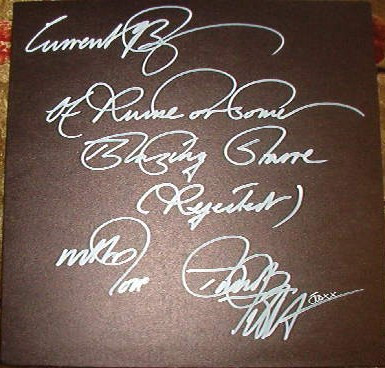 Current 93
Of Ruine or Some
Blazing Starre
(Rejected)
with
love David
Tibet